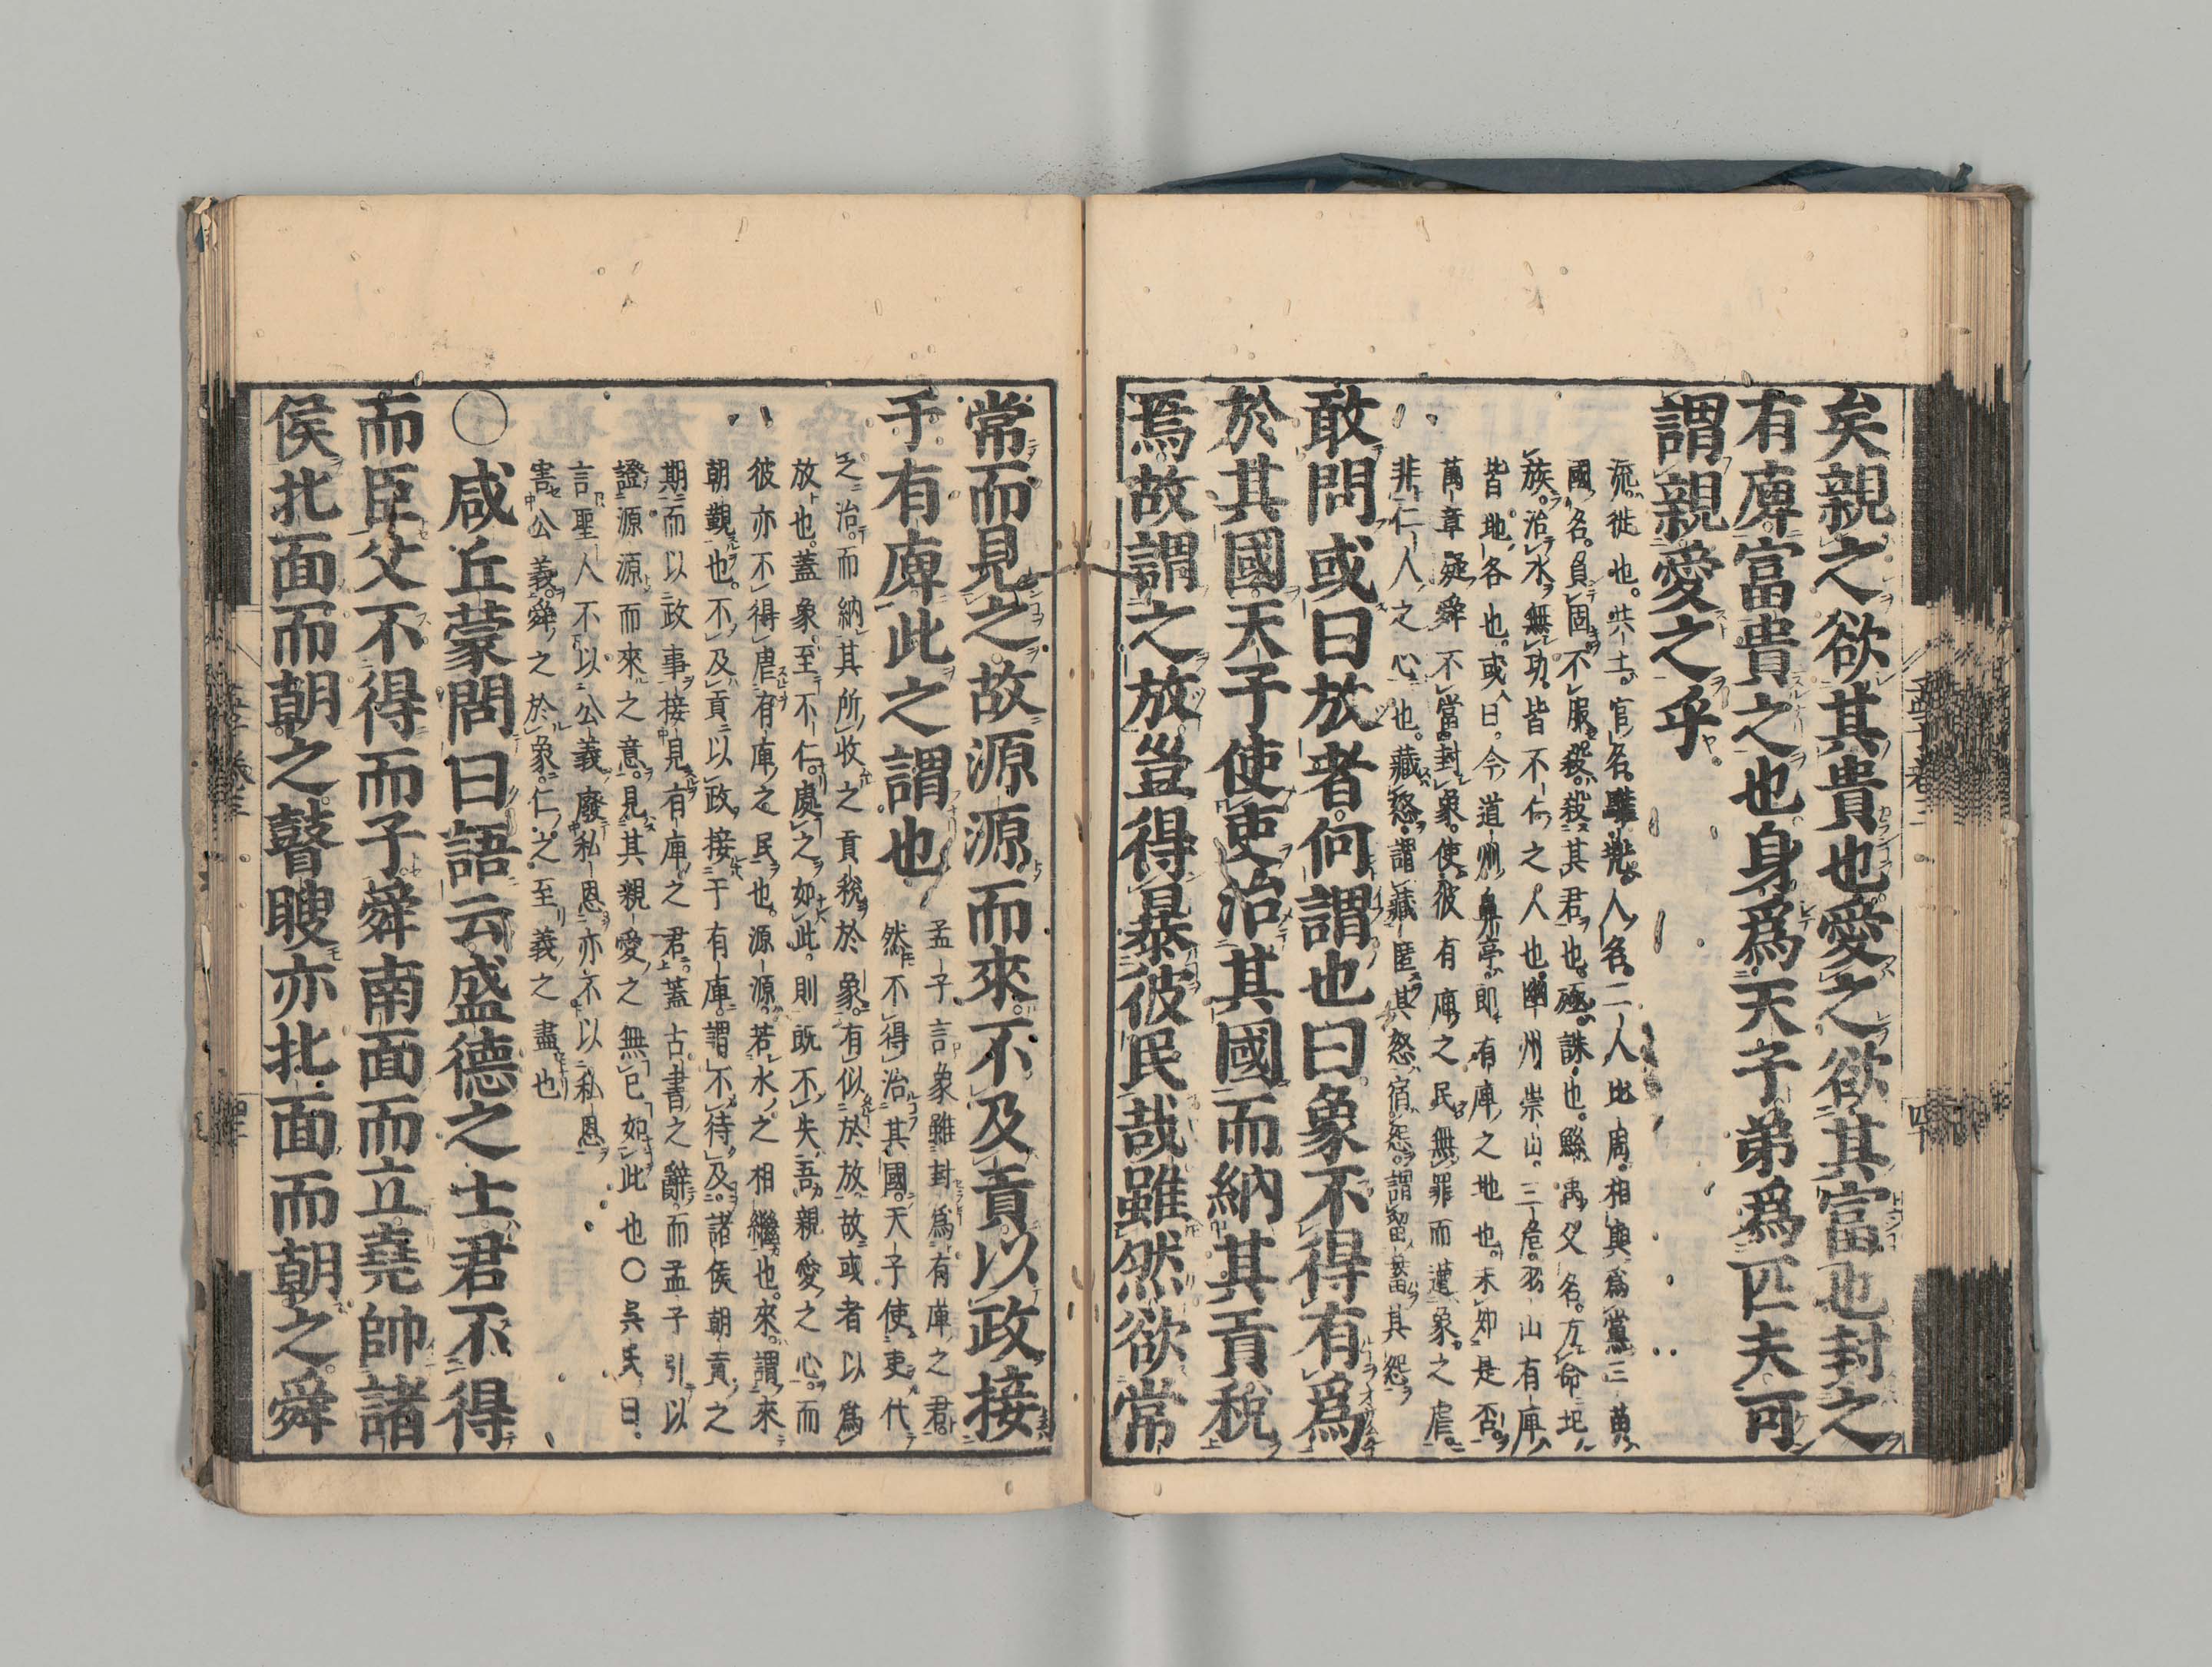 矣親之欲其貴也愛之欲其富也封之
有庳富貴之也身爲天子弟爲匹夫可
謂親愛之乎
流徙也共工官名驩兜人名二人比周相與爲黨三苗
國名負固不服殺殺其君也殛誅也鯀禹父名方命圮
族治水無功皆不仁之人也幽州崇山三危羽山有庳
皆地名也或曰今道州鼻亭即有庳之地也未知是否
萬章疑舜不當封象使彼有庳之民無罪而遭象之虐
非仁人之心也藏怒謂藏匿其怒宿怨謂留蓄其怨
敢問或曰放者何謂也曰象不得有爲
於其國天子使吏治其國而納其貢稅
焉故謂之放豈得暴彼民哉雖然欲常
常而見之故源源而來不及貢以政接
于有庳此之謂也
孟子言象雖封爲有庳之君
然不得治其國天子使吏代
之治而納其所收之貢稅於象有似於放故或者以爲
放也蓋象至不仁處之如此則既不失吾親愛之心而
彼亦不得虐有庳之民也源源若水之相繼也來謂來
朝覲也不及貢以政接于有庳謂不待及諸侯朝貢之
期而以政事接見有庳之君蓋古書之辭而孟子引以
證源源而來之意見其親愛之無已如此也○吳氏曰
言聖人不以公義廢私恩亦不以私恩
害公義舜之於象仁之至義之盡也
○咸丘蒙問曰語云盛德之士君不得
而臣父不得而子舜南面而立堯帥諸
侯北面而朝之瞽瞍亦北面而朝之舜